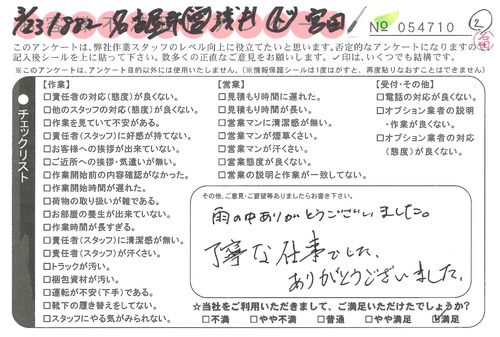 3/23 1882 名古屋市 営 浅井 L 宮田
No 054710 2
このアンケートは、弊社作業スタッフのレベル向上に役立てたいと思います。否定的なアンケートになりますので
記入後シールを上に貼って下さい。数多くの正直なご意見をお願いします。✓印は、いくつでも結構です。
※このアンケートは、アンケート目的以外には使用いたしません。(※情報保護シールは1度はがすと、再度貼りなおすことはできません)
チェックリスト
【作業】
□責任者の対応(態度)が良くない。
□他のスタッフの対応(態度)が良くない。
□作業を見ていて不安がある。
□責任者(スタッフ)に好感が持てない。
□お客様への挨拶が出来ていない。
□ご近所への挨拶・気遣いが無い。
□作業開始前の内容確認がなかった。
□作業開始時間が遅れた。
□荷物の取り扱いが雑である。
□お部屋の養生が出来ていない。
□作業時間が長すぎる。
□責任者(スタッフ)に清潔感が無い。
□責任者(スタッフ)が汗くさい。
□トラックが汚い。
□梱包資材が汚い。
□運転が不安(下手)である。
□靴下の履き替えをしてない。
□スタッフにやる気がみられない。
【営業】
□見積もり時間に遅れた。
□見積もり時間が長い。
□営業マンに清潔感が無い。
□営業マンが煙草くさい。
□営業マンが汗くさい。
□営業態度が良くない。
□営業の説明と作業が一致してない。
【受付・その他】
□電話の対応が良くない。
□オプション業者の説明
・作業が良くない。
□オプション業者の対応
(態度)が良くない。
その他、ご意見・ご要望等ありましたらお書き下さい。
雨の中ありがとうございました。
丁寧な仕事でした、
ありがとうございました。
☆当社をご利用いただきまして、ご満足いただけたでしょうか?
□不満 □やや不満 □普通 □やや満足 ☑満足